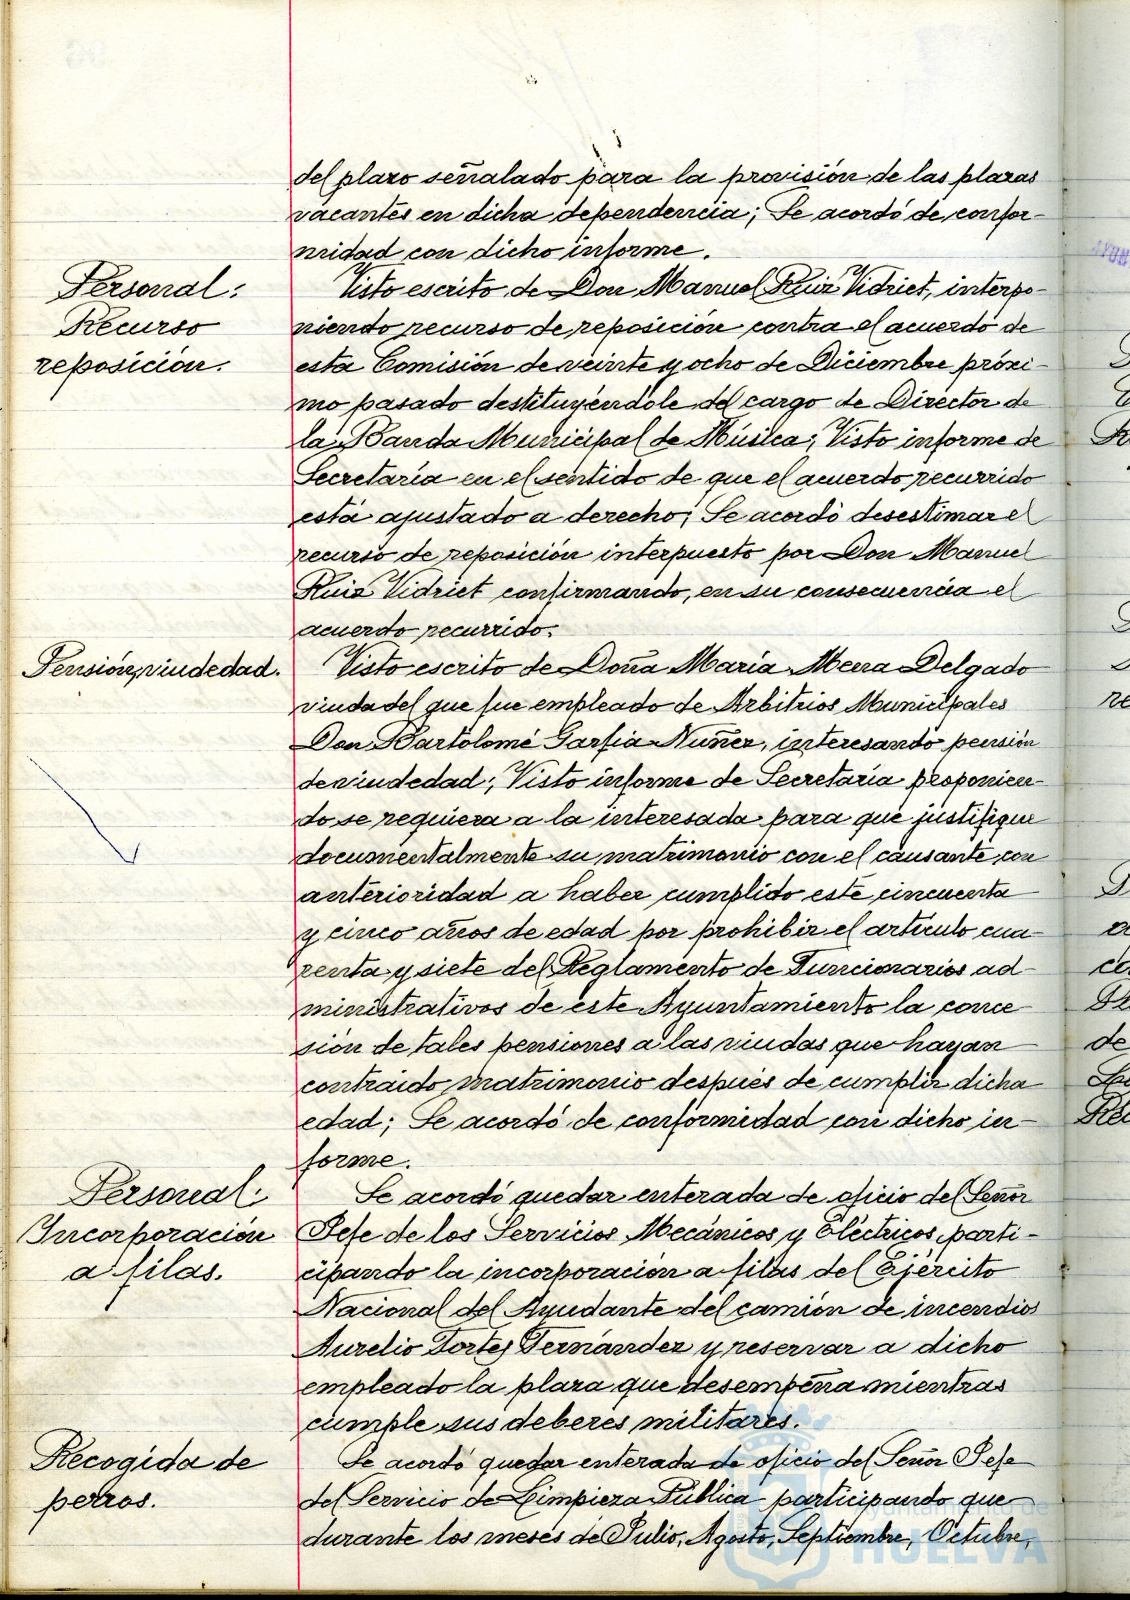 del plazo señalado para la provisión de las plazas
vacantes en dicha dependencia; Se acordó de confor-
midad con dicho informe.
Personal:
Recurso
reposición.
Visto escrito de Don Manuel Ruiz Vidriet, interpo-
niendo recurso de reposición contra el acuerdo de
esta Comisión de veinte y ocho de Diciembre próxi-
mo pasado destituyéndole del cargo de Director de
la Banda Municipal de Música; Visto informe de
Secretaría en el sentido de que el acuerdo recurrido
está ajustado a derecho; Se acordó desestimar el
recurso de reposición interpuesto por Don Manuel
Ruiz Vidriet confirmando, en su consecuencia el
acuerdo recurrido.
Pensión viudedad.
Visto escrito de Doña María Mera Delgado
viuda del que fue empleado de Arbitrios Municipales
Don Bartolomé Garfia Nuñez, interesando pensión
de viudedad; Visto informe de Secretaría proponien-
do se requiera a la interesada para que justifique
documentalmente su matrimonio con el causante con
anterioridad a haber cumplido este cincuenta
y cinco años de edad por prohibir el artículo cua-
renta y siete del Reglamento de Funcionarios ad-
ministrativos de este Ayuntamiento la conce-
sión de tales pensiones a las viudas que hayan
contraido matrimonio después de cumplir dicha
edad; Se acordó de conformidad con dicho in-
forme.
Personal:
Incorporación
a filas.
Se acordó quedar enterada de oficio del Señor
Jefe de los Servicios Mecánicos y Eléctricos, parti-
cipando la incorporación a filas del Ejército
Nacional del Ayudante del camión de incendios
Aurelio Fortes Fernández y reservar a dicho
empleado la plaza que desempeña mientras
cumple sus deberes militares.
Recogida de
perros.
Se acordó quedar enterada de oficio del Señor Jefe
del Servicio de Limpieza Pública participando que
durante los meses de Julio, Agosto, Septiembre, Octubre,
Ayuntamiento de
HUELVA